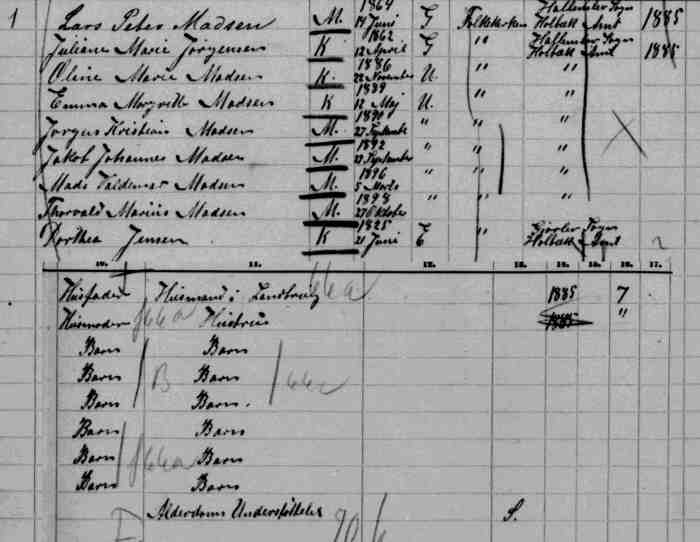 1 Lars Peter Madsen M. 1864 14 Juni G Folkekirken Holbæk Amt 1885
Juliane Marie Jørgensen K 1862 12 April G " Holbæk Amt 1885
Oline Marie Madsen K. 1886 22 November U. " "
Emma Margrethe Madsen K 1889 12 Maj U. " "
Jørgen Kristian Madsen M. 27 September " " "
Jakob Johannes Madsen M. 1892 September " " "
Mads Valdemar Madsen M. 1896 5 Marts " " "
Thorvald Marius Madsen M. 1898 27 Oktober " " "
Dorthea Jensen K 1825 21 Juni E " Sogn Holbæk Amt ?
10. 11. 12. 13. 14. 15. 16. 17.
Husfader Husmand i Landbrug 1885 7
Husmoder Hustru 1885 "
Barn Barn
Barn B Barn
Barn Barn.
Barn Barn
Barn Barn
Barn Barn
Alderdoms Understøttelse S.